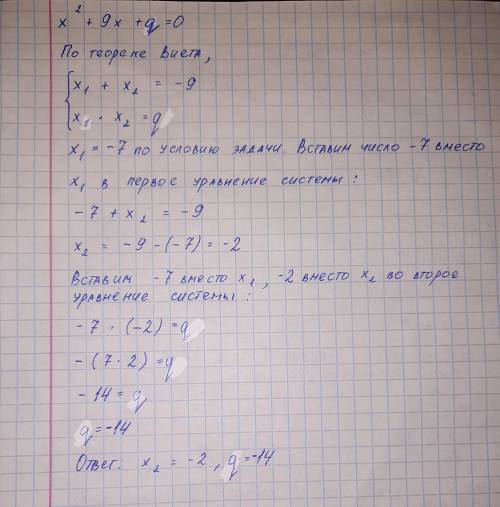 x² + 9x + q = 0
По теореме Виета,
x₁ + x₂ = -9
x₁ · x₂ = q
x₁ = -7 по условию задачи. Вставим число -7 вместо
x₁ в первое уравнение системы:
-7 + x₂ = -9
x₂ = -9 - (-7) = -2
Вставим -7 вместо x₁, -2 вместо x₂ во второе
уравнение системы:
-7 · (-2) = q
-(7 · 2) = q
-14 = q
q = -14
Ответ: x₂ = -2, q = -14